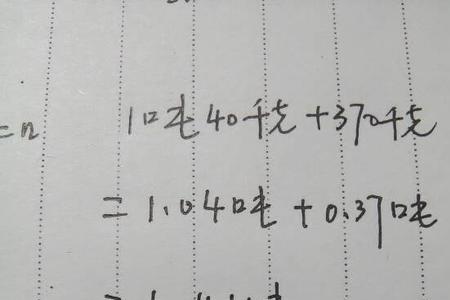 =n
1吨40千克+370千克
=1.04吨+0.37吨